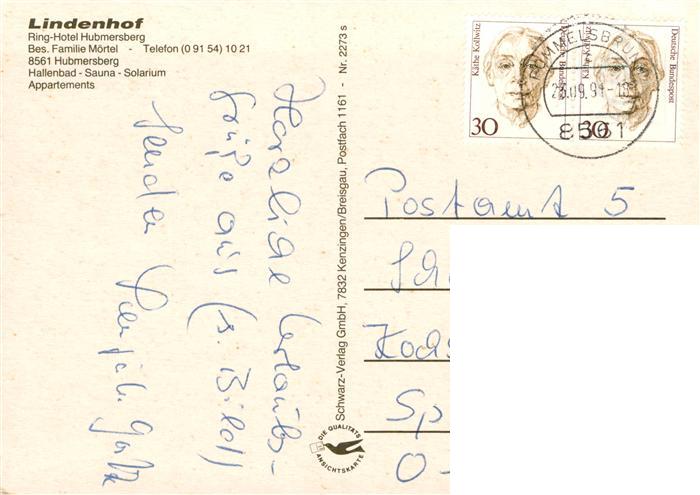 Lindenhof
Ring-Hotel Hubmersberg
Bes. Familie Mörtel - Telefon (0 91 54) 10 21
8561 Hubmersberg
Hallenbad - Sauna - Solarium
Appartements
Herzliche Urlaubs-
grüße aus (s. Bild)
senden
Schwarz-Verlag GmbH, 7832 Kenzingen/Breisgau, Postfach 1161 - Nr. 2273 s
DIE QUALITÄTS
ANSICHTSKARTE
Käthe Kollwitz
30
Deutsche Bundespost
30
POMMELSBRUNN
23.09.91-18
8561
Postamt 5
Sch
Koch
Sp
O-